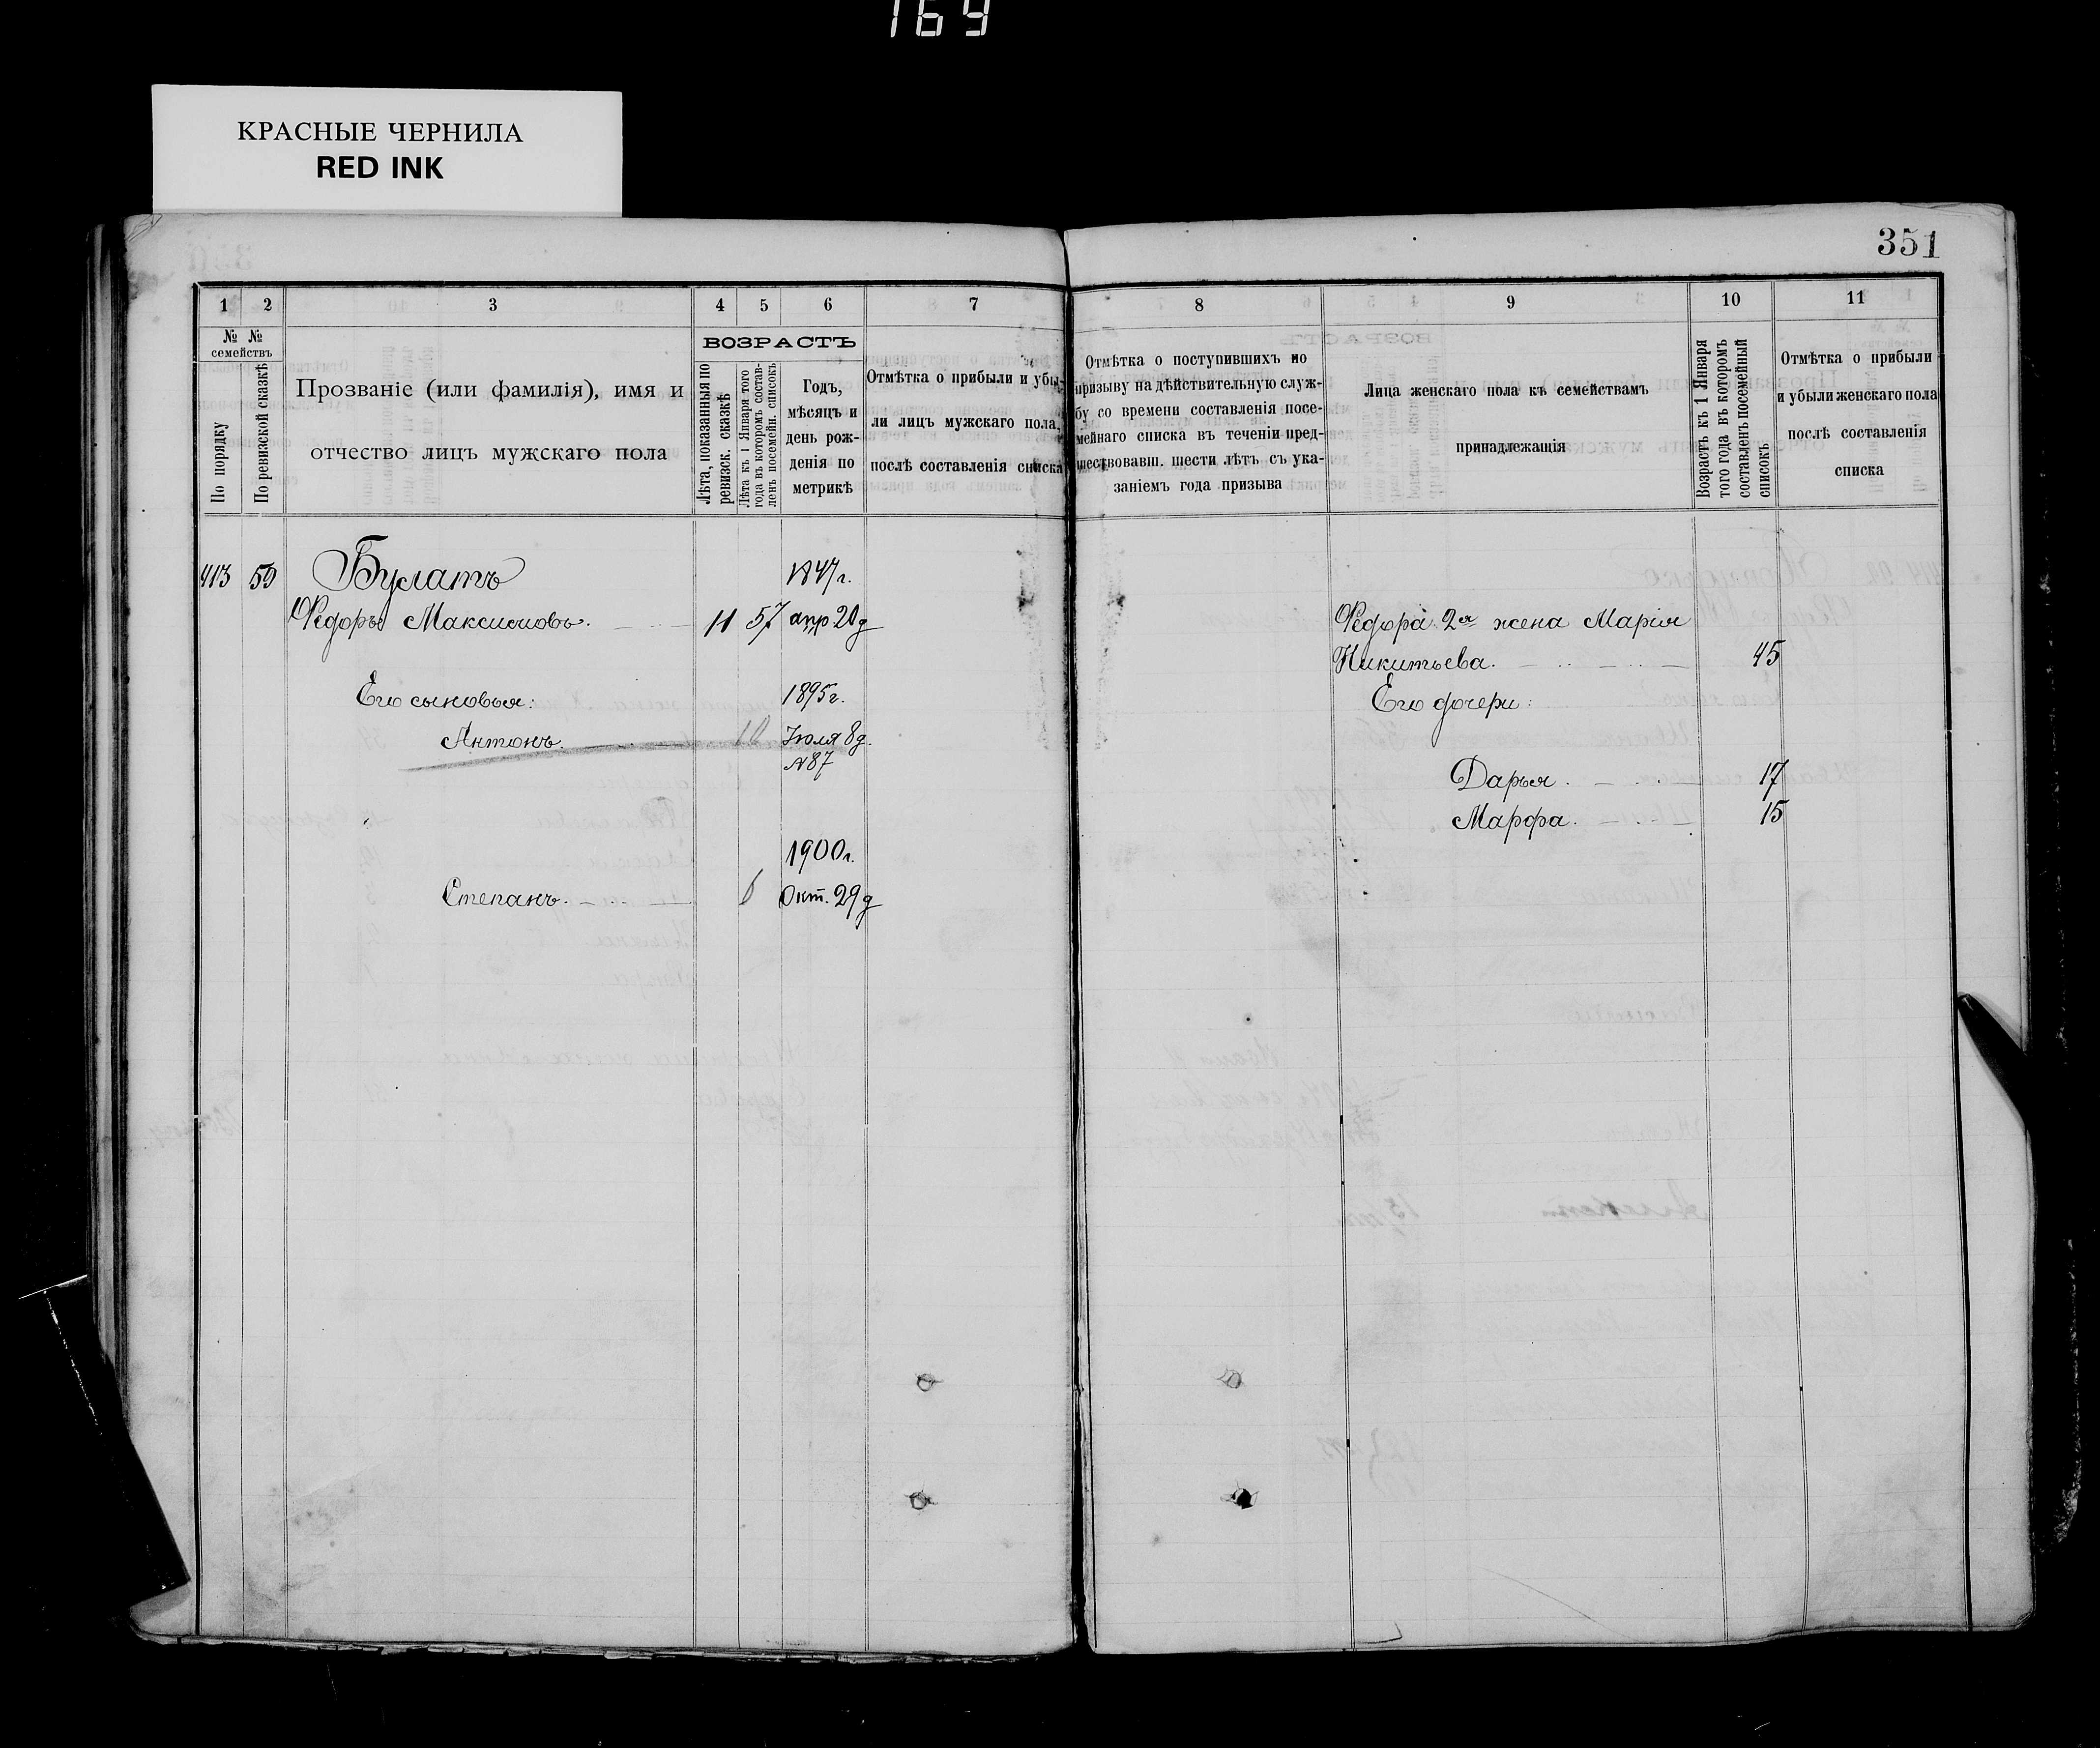 169
КРАСНЫЕ ЧЕРНИЛА
RED INK
351
1 2 3 4 5 6 7 8 9 10 11
№ № семействъ
По порядку
По ревизской сказкѣ
Прозваніе (или фамилія), имя и
отчество лицъ мужскаго пола
ВОЗРАСТЪ
Лѣта, показанныя по
ревизск. сказкѣ
Лѣта къ 1 Января того
года въ которомъ состав-
ленъ посемейн. списокъ
Годъ,
мѣсяцъ и
день рож-
денія по
метрикѣ
Отмѣтка о прибыли и убы-
ли лицъ мужскаго пола,
послѣ составленія списка
Отмѣтка о поступившихъ по
призыву на дѣйствительную служ-
бу со времени составленія посе-
мейнаго списка въ теченіи пред-
шествовавш. шести лѣтъ съ ука-
заніемъ года призыва
Лица женскаго пола къ семействамъ
принадлежащія
Возрастъ къ 1 Января
того года въ которомъ
составленъ посемейный
списокъ
Отмѣтка о прибыли
и убыли женскаго пола
послѣ составленія
списка
413 59 Булатъ 1847 г.
Ѳедоръ Максимовъ. 11 57 апр 20 д
Ѳедора 2я жена Марія
Никитьева. 45
Его сыновья: 1895 г.
Его дочери:
Антонъ. 10 Іюля 8 д.
№ 87
Дарья. 17
Марфа. 15
1900 г.
Степанъ. Окт. 29 д